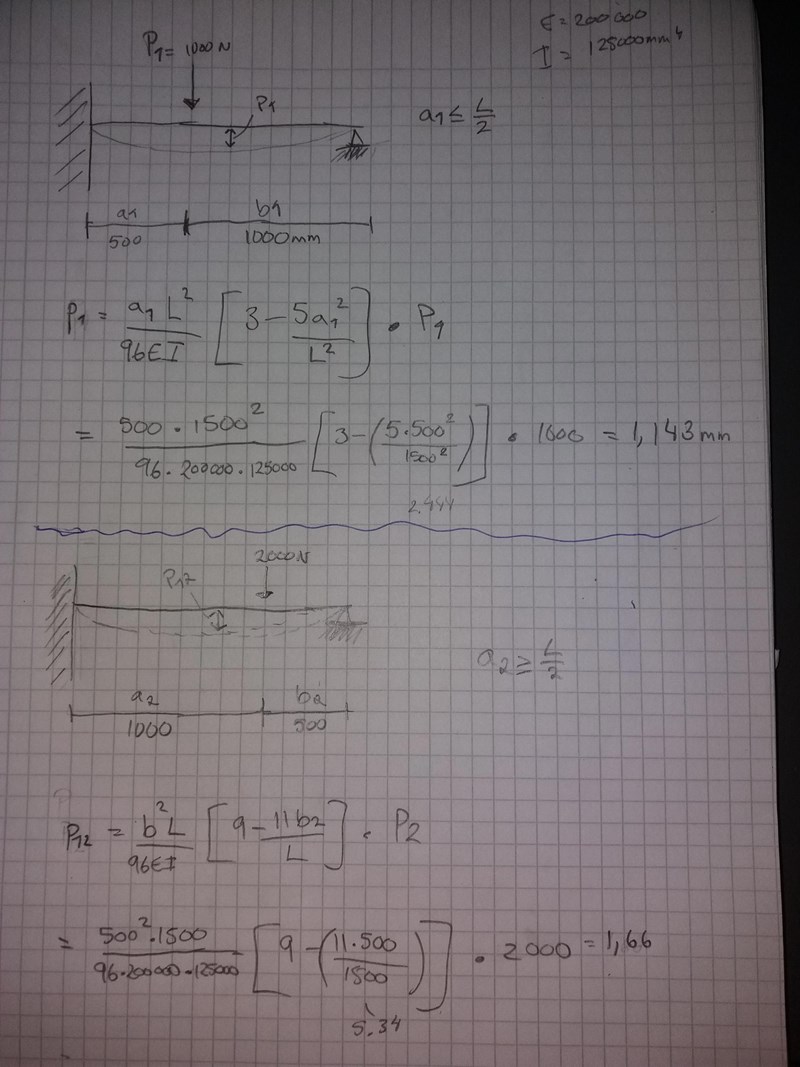 E = 200000
I = 125000mm⁴
P₁ = 1000N
P₁
a₁ ≤ L/2
a₁ b₁
500 1000mm
P₁ = a₁L²/96EI [3 - 5a₁²/L²] · P₁
= 500 · 1500²/96 · 200000 · 125000 [3 - (5·500²/1500²)] · 1000 = 1,143 mm
2.444
2000N
P₁₂
a₂ ≥ L/2
a₂ b₂
1000 500
P₁₂ = b²L/96EI [9 - 11b₂/L] · P₂
= 500²·1500/96·200000·125000 [9 - (11·500/1500)] · 2000 = 1,66
5.34